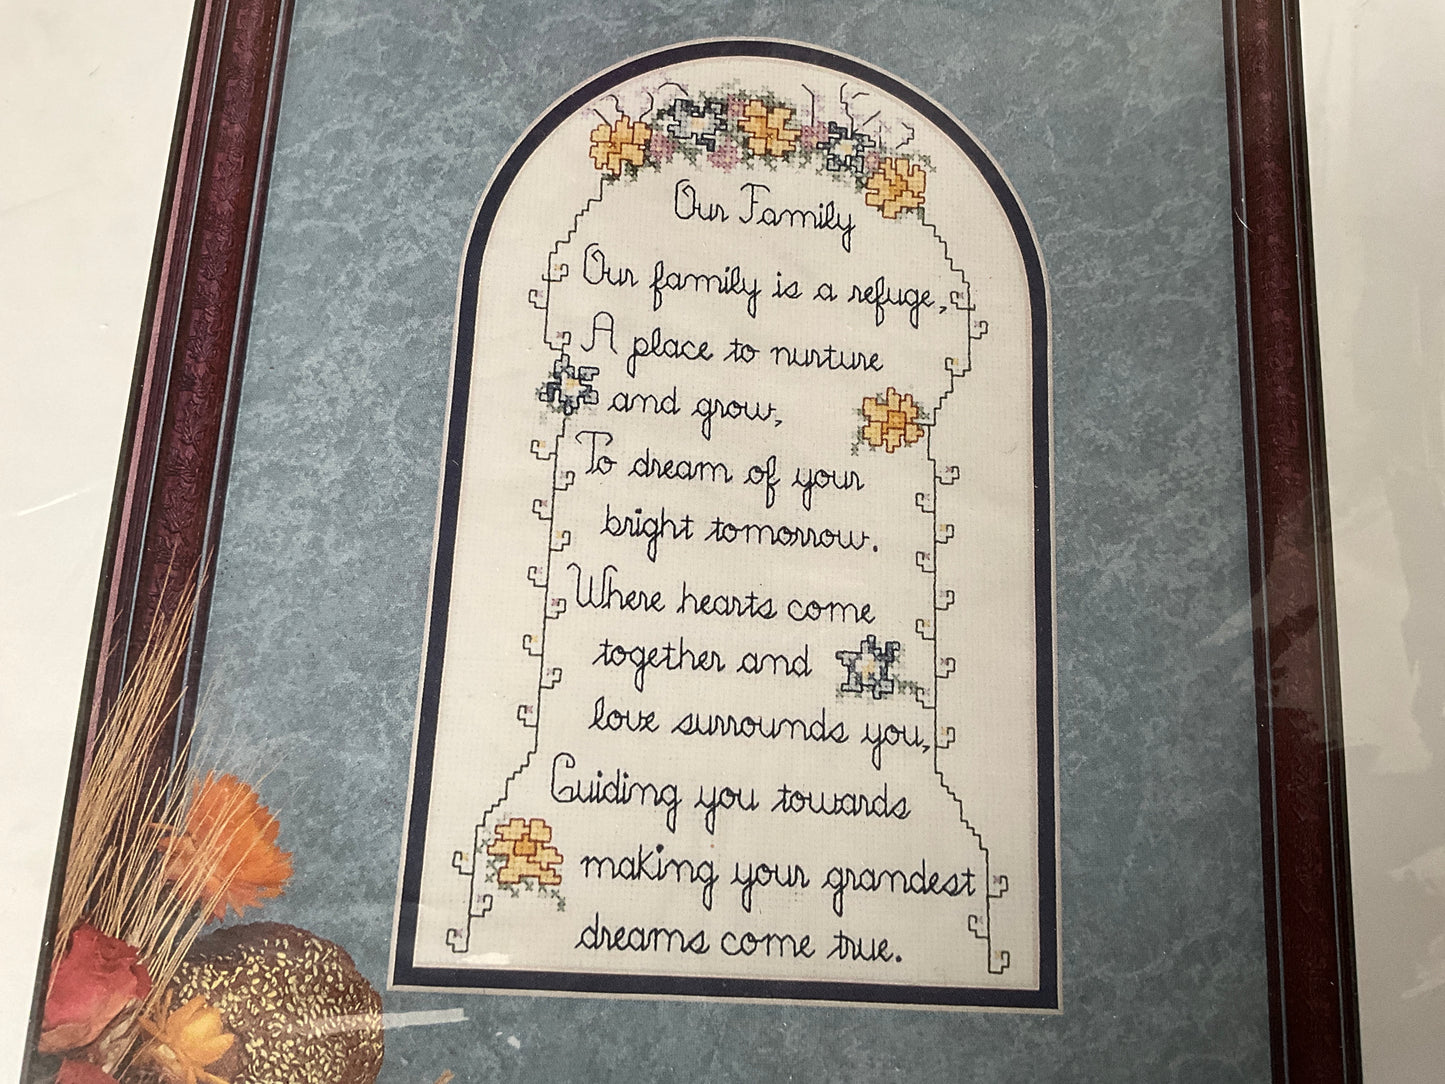 Our Family
Our family is a refuge,
A place to nurture
and grow,
To dream of your
bright tomorrow.
Where hearts come
together and
love surrounds you,
Guiding you towards
making your grandest
dreams come true.